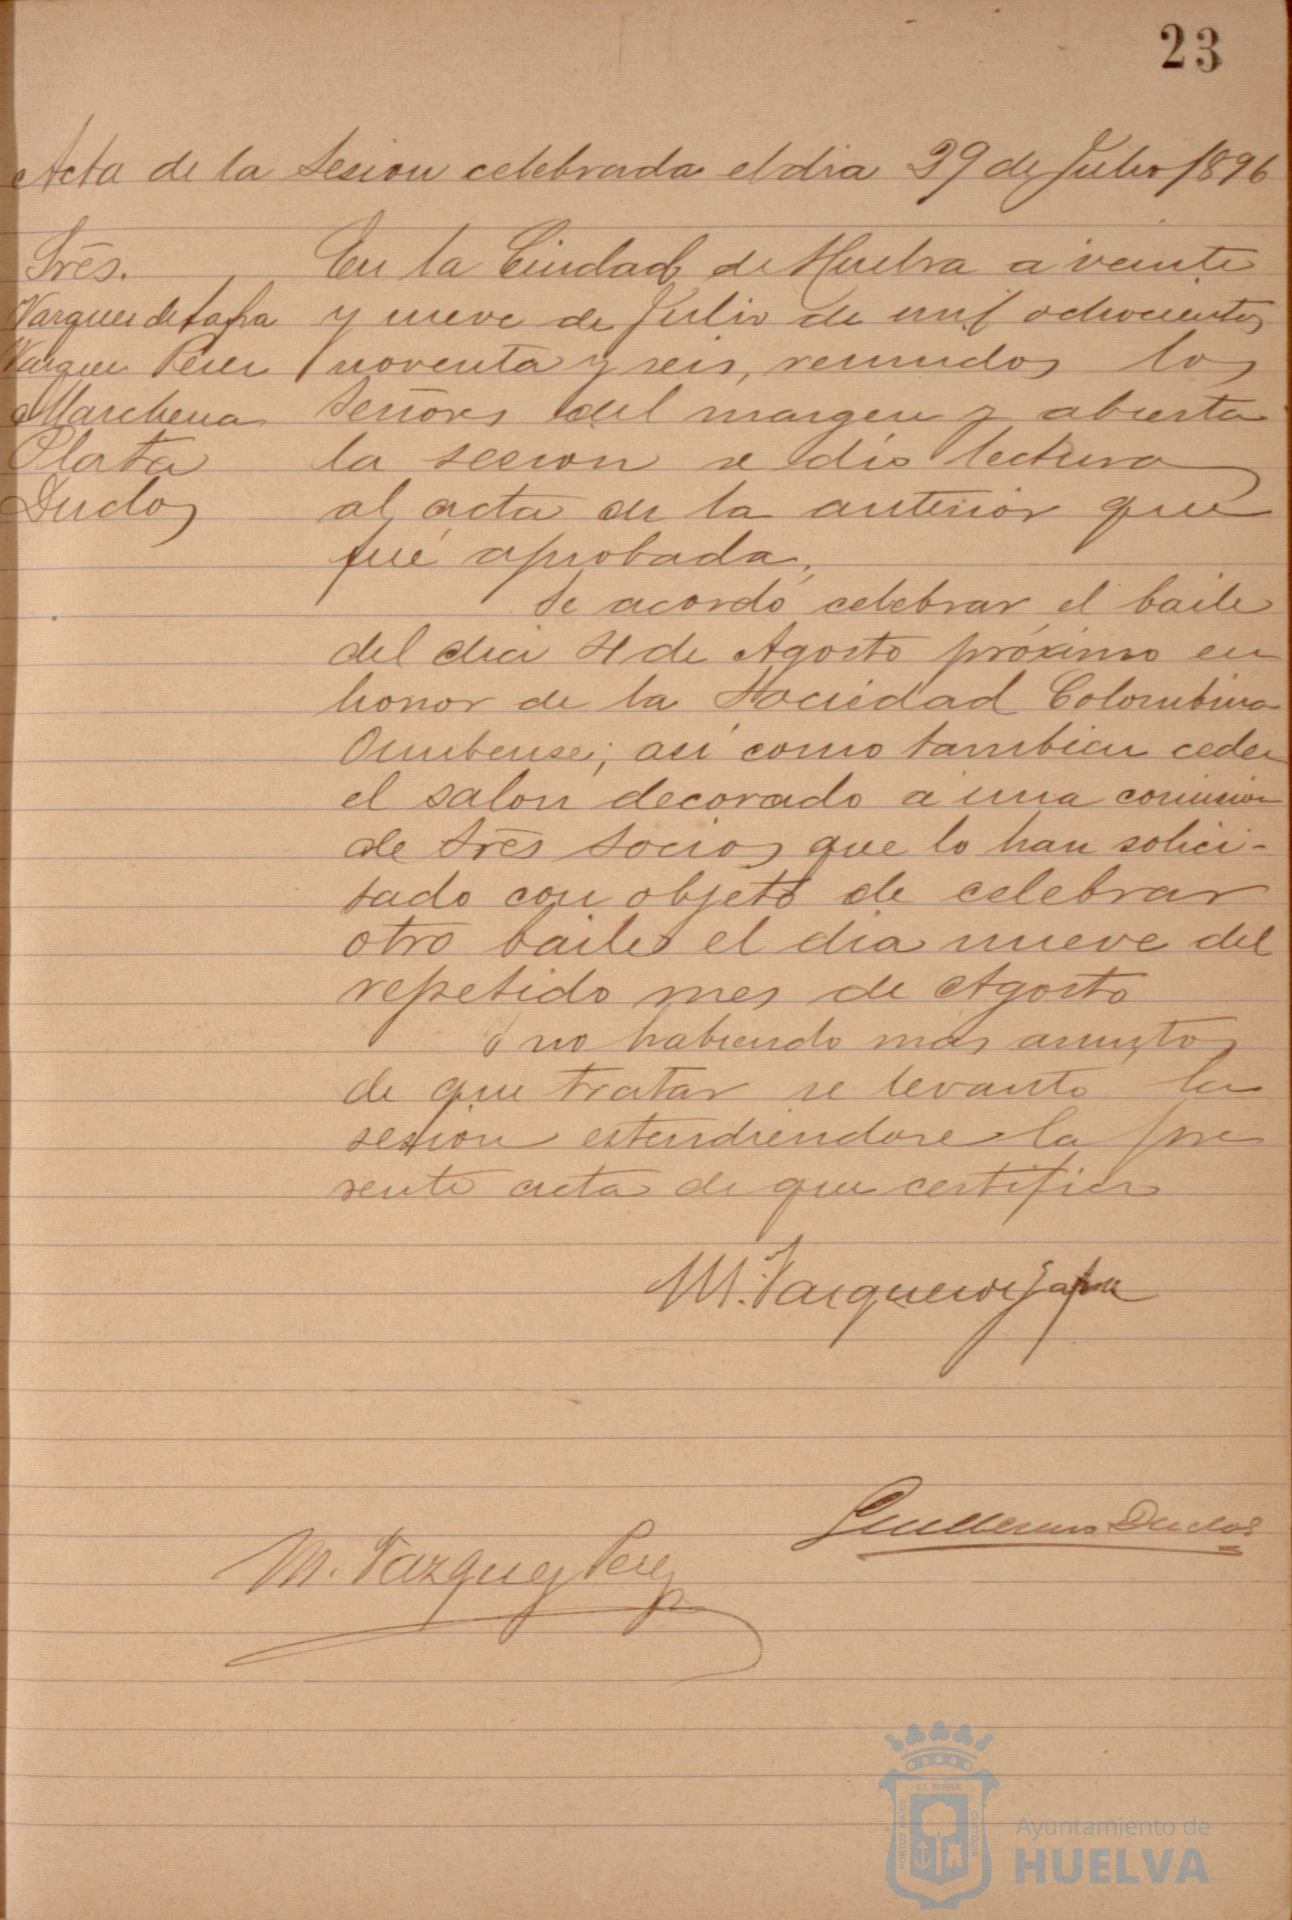 23
Acta de la Sesion celebrada el dia 29 de Julio 1896
Srēs.
Vazquez de Zafra
Vazquez Perez
Marchena
Plata
Duclos
En la Ciudad de Huelva a veinte
y nueve de Julio de mil ochocientos
noventa y seis, reunidos los
Señores del margen y abierta
la sesion se dió lectura
al acta de la anterior que
fué aprobada.
Se acordó celebrar el baile
del dia 4 de Agosto próximo en
honor de la Sociedad Colombina
Onubense; así como tambien ceder
el salon decorado á una comision
de trēs socios que lo han solici-
tado con objeto de celebrar
otro baile el dia nueve del
repetido mes de Agosto
Y no habiendo más asuntos
de que tratar se levantó la
sesion estendiendose la pre
sente acta de que certifico
M. Vazquez de Zafra
Guillermo Duclos
M. Vazquez Perez
Ayuntamiento de
HUELVA